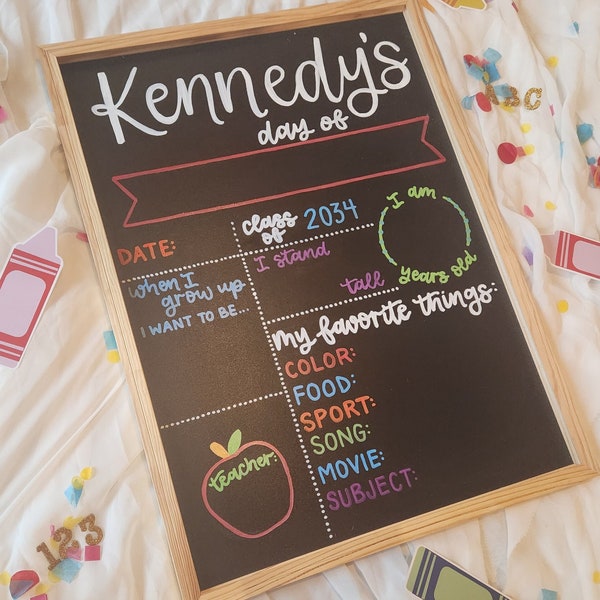 Kennedy's
day of
DATE:
class of 2034
I am
years old
I stand
tall
when I
grow up
I WANT TO BE...
my favorite things:
COLOR:
FOOD:
SPORT:
SONG:
MOVIE:
SUBJECT:
teacher:
ABC
123